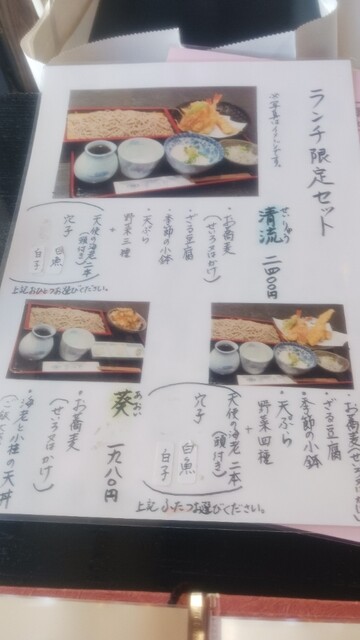 ランチ限定セット
※写真はイメージです。
せいりゅう
清流 二四〇〇円
・お蕎麦
(せいろ又はかけ)
・ざる豆腐
・季節の小鉢
・天ぷら
野菜三種
+
天使の海老二本
(頭付き)
穴子
白魚
白子
上記おひとつお選びください。
・お蕎麦(せいろ又はかけ)
・ざる豆腐
・季節の小鉢
・天ぷら
野菜四種
+
天使の海老 二本
(頭付き)
穴子
白魚
白子
上記 ふたつお選びください。
あおい
葵 一九八〇円
・お蕎麦
(せいろ又はかけ)
・海老と小柱の天丼